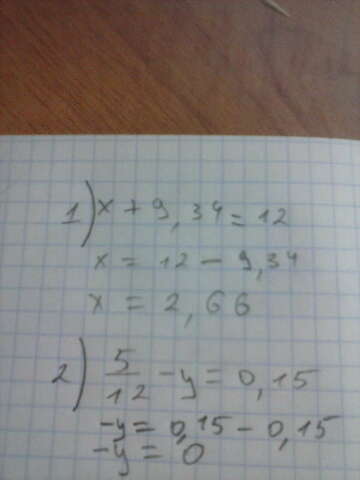 1) x + 9,34 = 12
x = 12 - 9,34
x = 2,66
2) 5/12 - y = 0,15
-y = 0,15 - 0,15
-y = 0